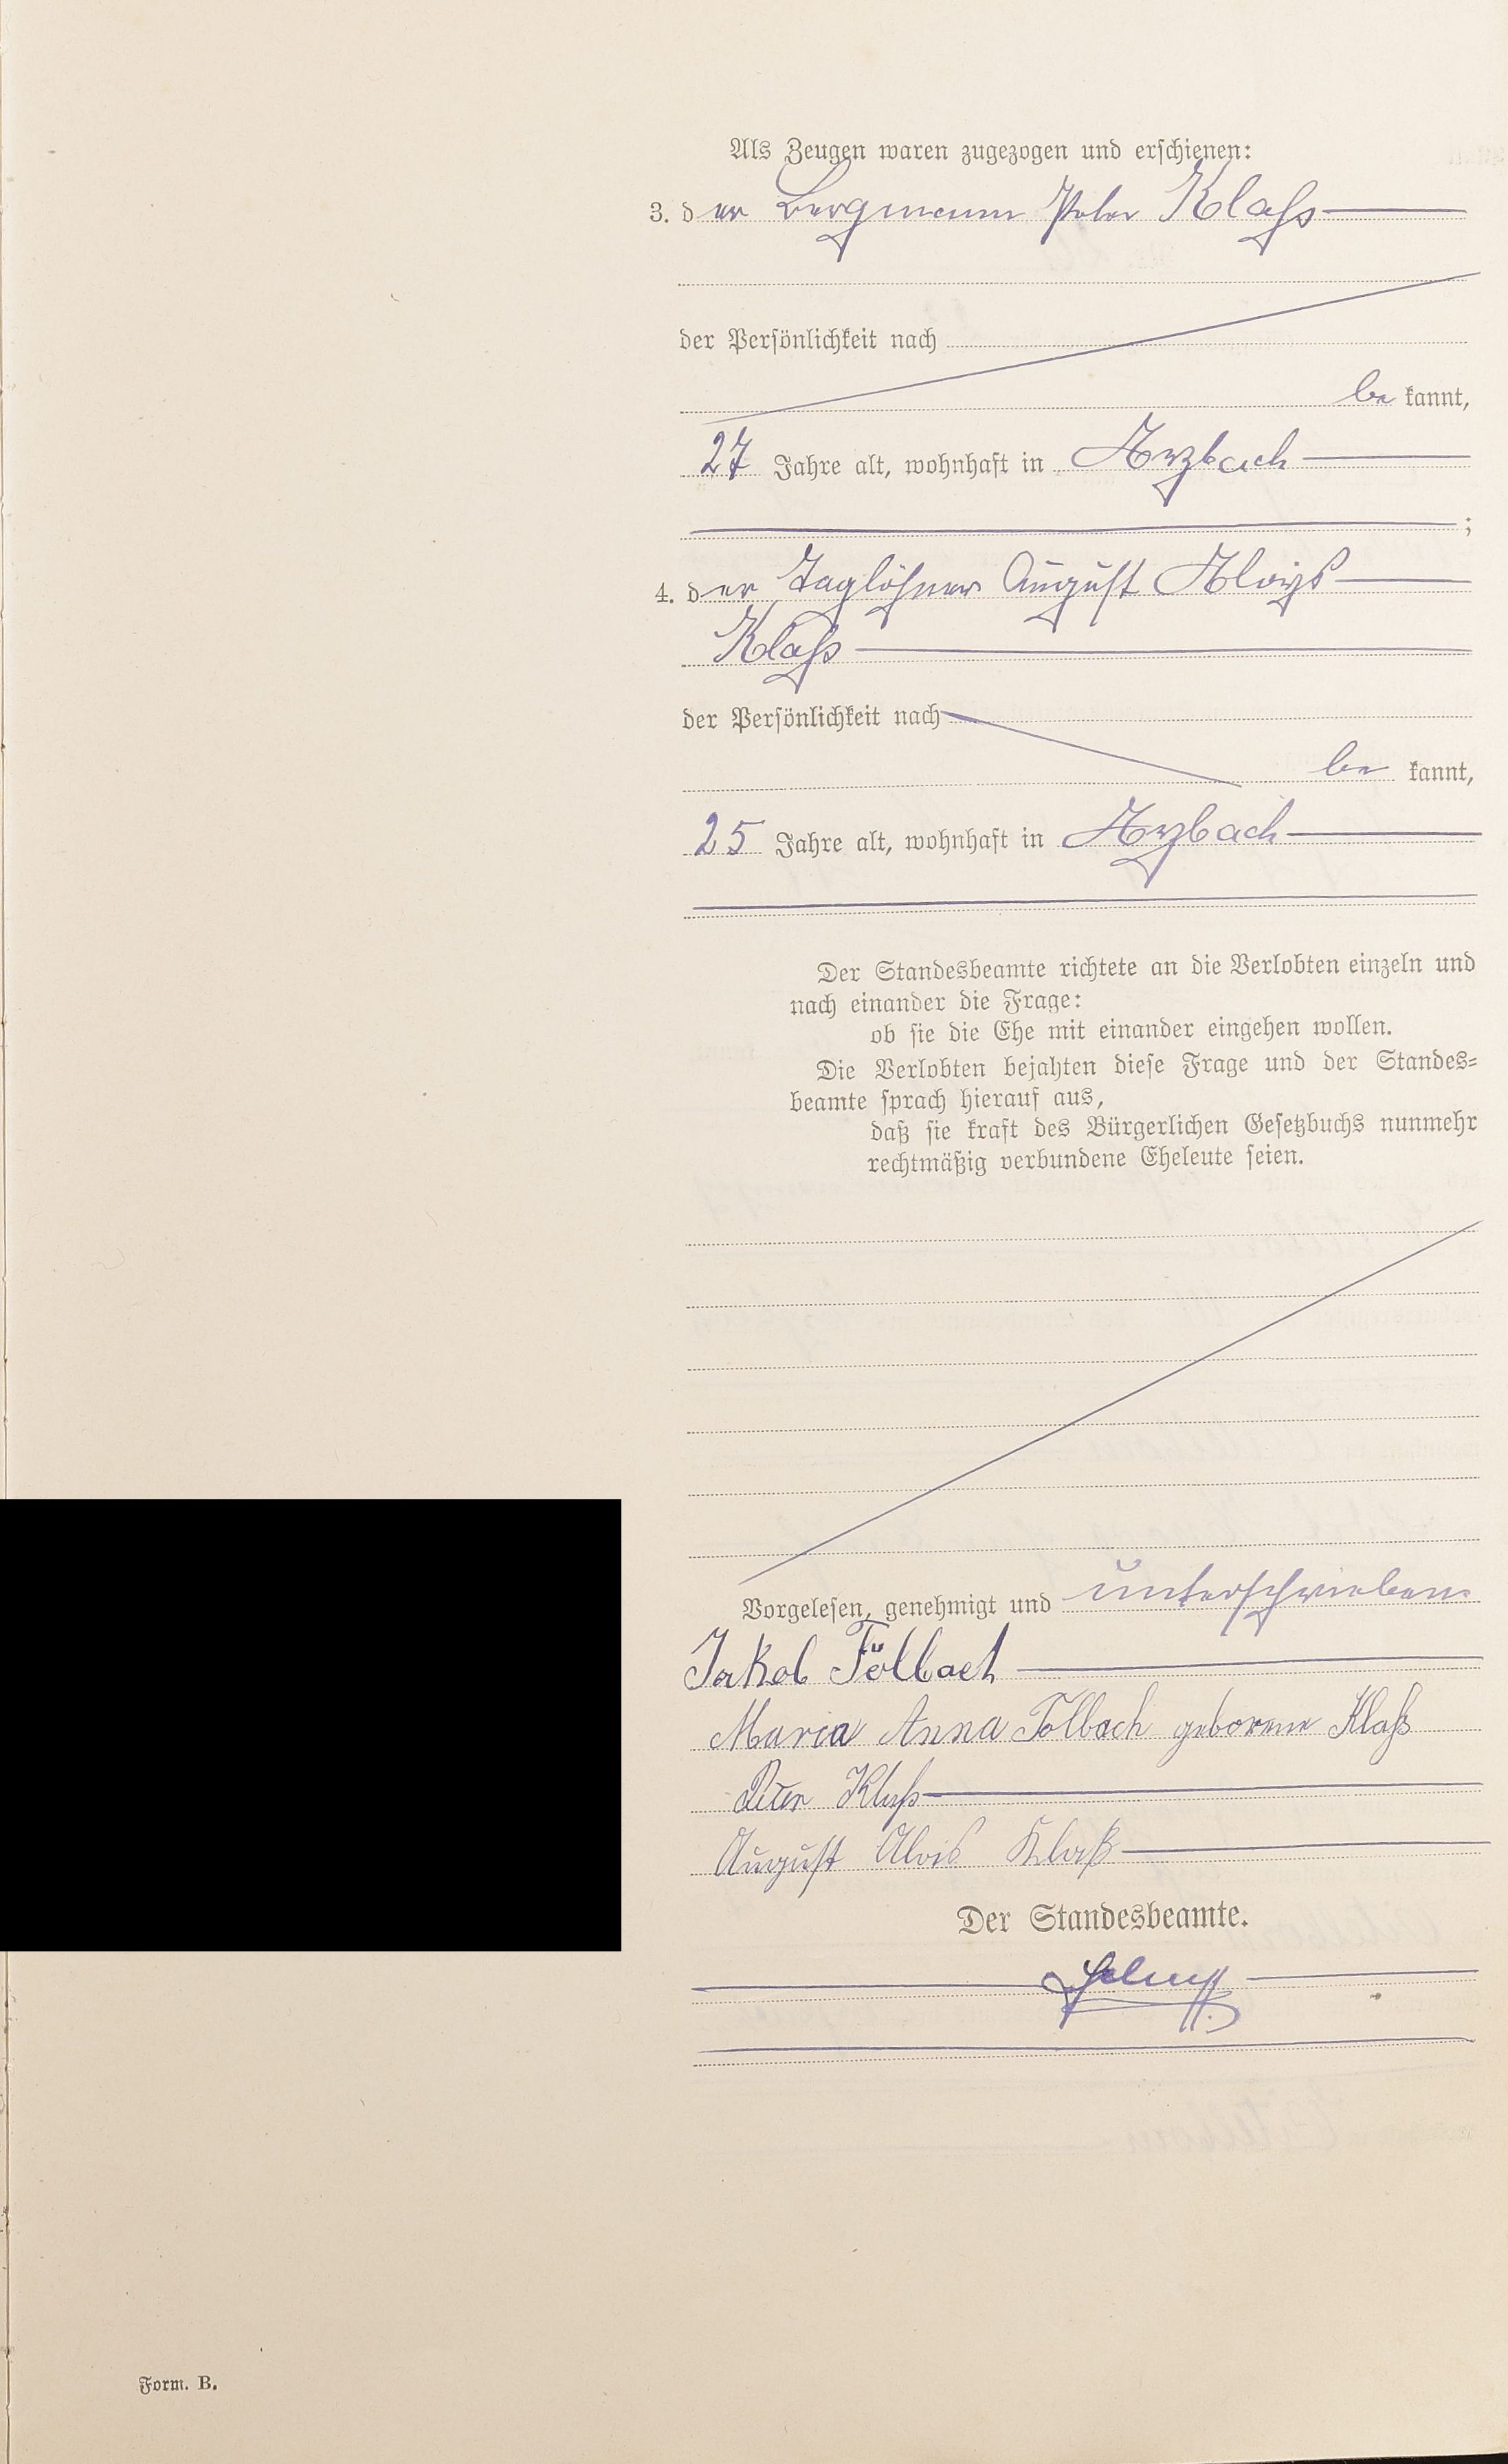 Als Zeugen waren zugezogen und erschienen:
3. der Bergmann Peter Klaß
der Persönlichkeit nach
bekannt,
27 Jahre alt, wohnhaft in Arzbach
;
4. der Taglöhner August Aloys
Klaß
der Persönlichkeit nach
bekannt,
25 Jahre alt, wohnhaft in Arzbach
Der Standesbeamte richtete an die Verlobten einzeln und
nach einander die Frage:
ob sie die Ehe mit einander eingehen wollen.
Die Verlobten bejahten diese Frage und der Standes=
beamte sprach hierauf aus,
daß sie kraft des Bürgerlichen Gesetzbuchs nunmehr
rechtmäßig verbundene Eheleute seien.
Vorgelesen, genehmigt und unterschrieben
Jakob Föllbach
Maria Anna Föllbach geborene Klaß
Peter Klaß
August Alois Klaß
Der Standesbeamte.
Form. B.